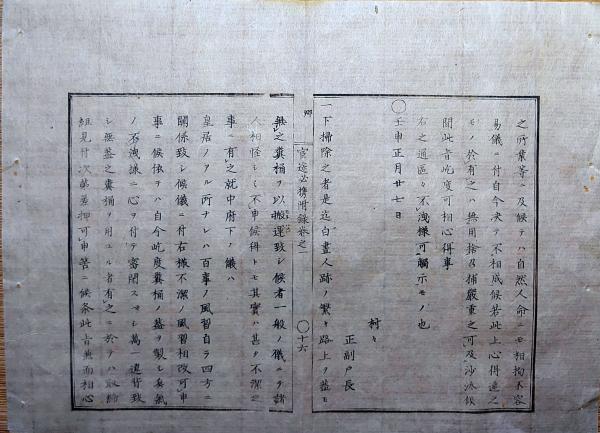 之所業等ニ及候テハ自然人命ニモ相拘不容
易儀ニ付自今決テ不相成候若此上心得違之
モノ於有之ハ無用捨召捕嚴重之可及沙汰候
間此旨屹度可相心得事
右之通區々不洩様可觸示モノ也
〇壬申正月廿七日
村々
正副戸長
一下掃除之者是迄白晝人跡ノ繁キ路上ヲ蓋モ
郷
官途必携附録巻之一
〇十六
無之糞桶ヲ以搬運致シ候者一般ノ儀ニテ諸
人相怪シミ不申候得トモ其實ハ甚タ不潔之
事ニ有之就中府下ノ儀ハ
皇居ノアル所ナレハ百事ノ風習自ラ四方ニ
關係致シ候儀ニ付右様不潔ノ風習相改可申
事ニ候依テハ自今屹度糞桶ノ蓋ヲ製シ臭氣
ノ不洩様ニ心ヲ付テ密閉スヘシ萬一違背致
シ無蓋之糞桶ヲ用ユル者有之ニ於テハ取締
組見付次第差押可申筈ニ候条此旨兼而相心